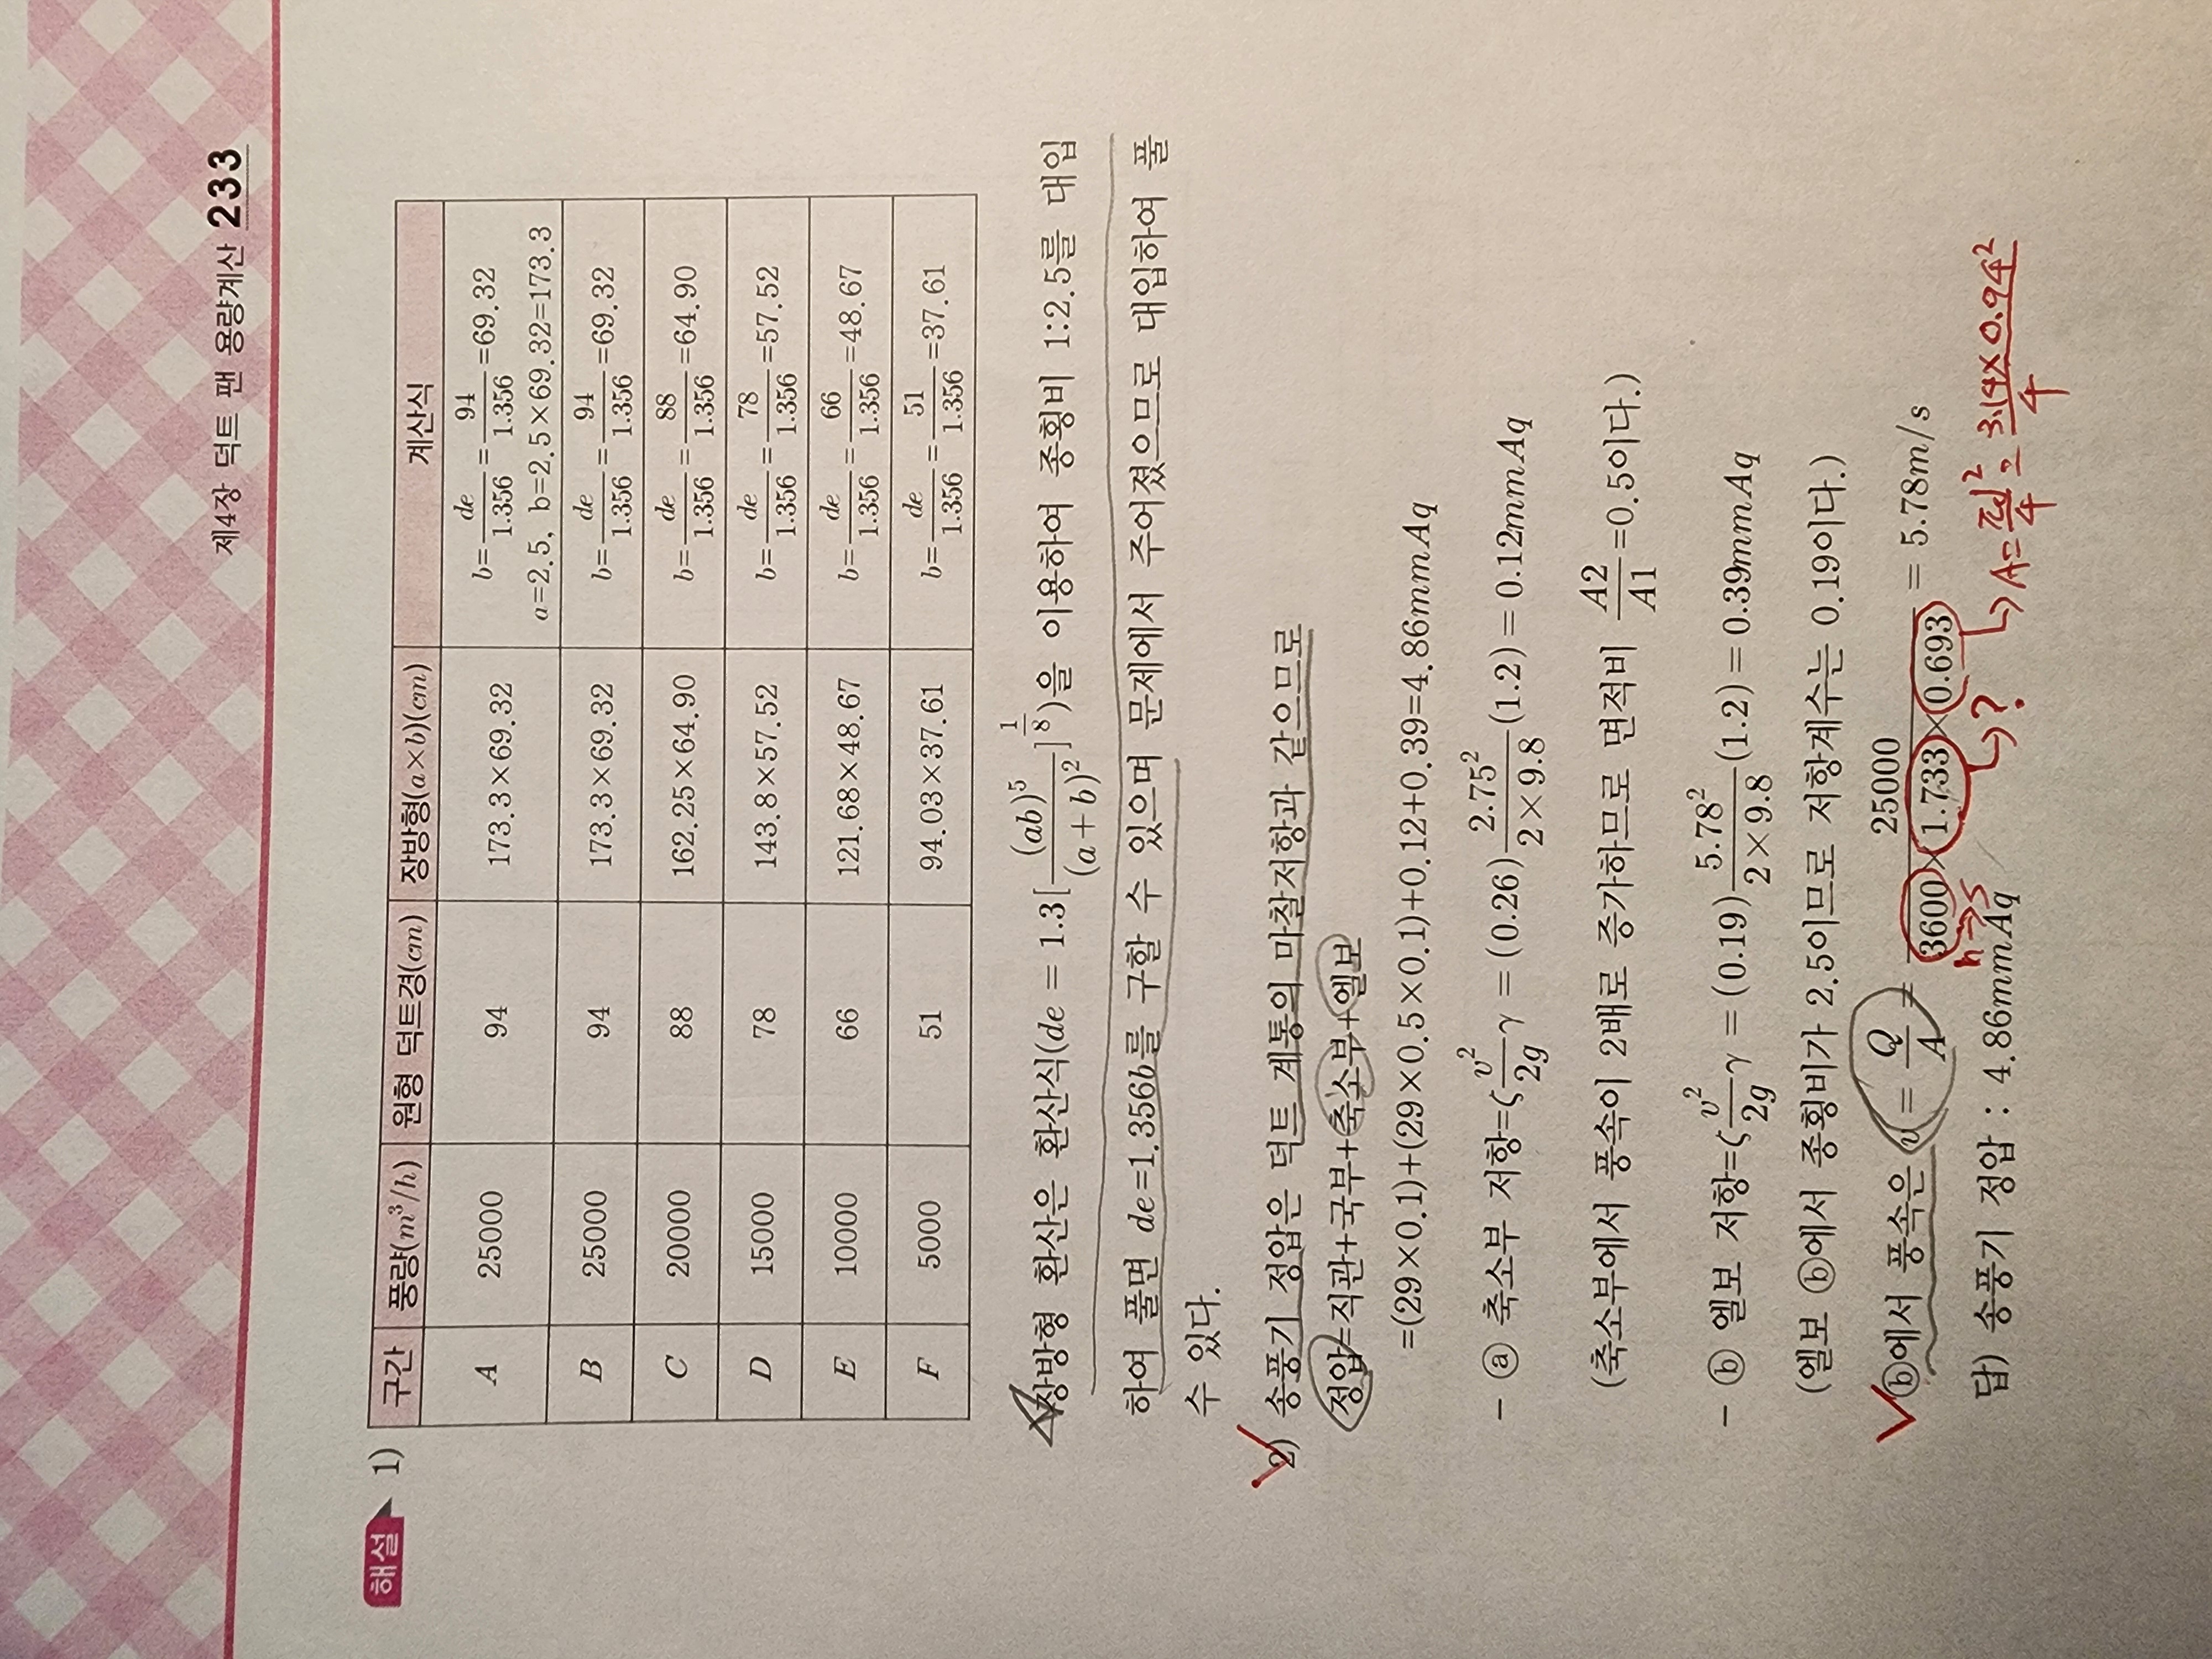 제4장 덕트 팬 용량계산 233
해설 1)
구간 풍량(m³/h) 원형 덕트경(cm) 장방형(a×b)(cm) 계산식
A 25000 94 173.3×69.32 b=de/1.356=94/1.356=69.32
a=2.5, b=2.5×69.32=173.3
B 25000 94 173.3×69.32 b=de/1.356=94/1.356=69.32
C 20000 88 162.25×64.90 b=de/1.356=88/1.356=64.90
D 15000 78 143.8×57.52 b=de/1.356=78/1.356=57.52
E 10000 66 121.68×48.67 b=de/1.356=66/1.356=48.67
F 5000 51 94.03×37.61 b=de/1.356=51/1.356=37.61
장방형 환산은 환산식(de = 1.3[(ab)⁵/(a+b)²]^(1/8))을 이용하여 종횡비 1:2.5를 대입
하여 풀면 de=1.356b를 구할 수 있으며 문제에서 주어졌으므로 대입하여 풀
수 있다.
2) 송풍기 정압은 덕트 계통의 마찰저항과 같으므로
정압=직관+국부+축소부+엘보
=(29×0.1)+(29×0.5×0.1)+0.12+0.39=4.86mmAq
- ⓐ 축소부 저항=ζ v²/2g γ = (0.26) 2.75²/2×9.8 (1.2) = 0.12mmAq
(축소부에서 풍속이 2배로 증가하므로 면적비 A2/A1=0.5이다.)
- ⓑ 엘보 저항=ζ v²/2g γ = (0.19) 5.78²/2×9.8 (1.2) = 0.39mmAq
(엘보 ⓑ에서 종횡비가 2.5이므로 저항계수는 0.19이다.)
ⓑ에서 풍속은 v = Q/A = 25000/3600×1.733×0.693 = 5.78m/s
h→s
↳ ?
↳ A = πd²/4 = 3.14×0.94²/4
답) 송풍기 정압 : 4.86mmAq